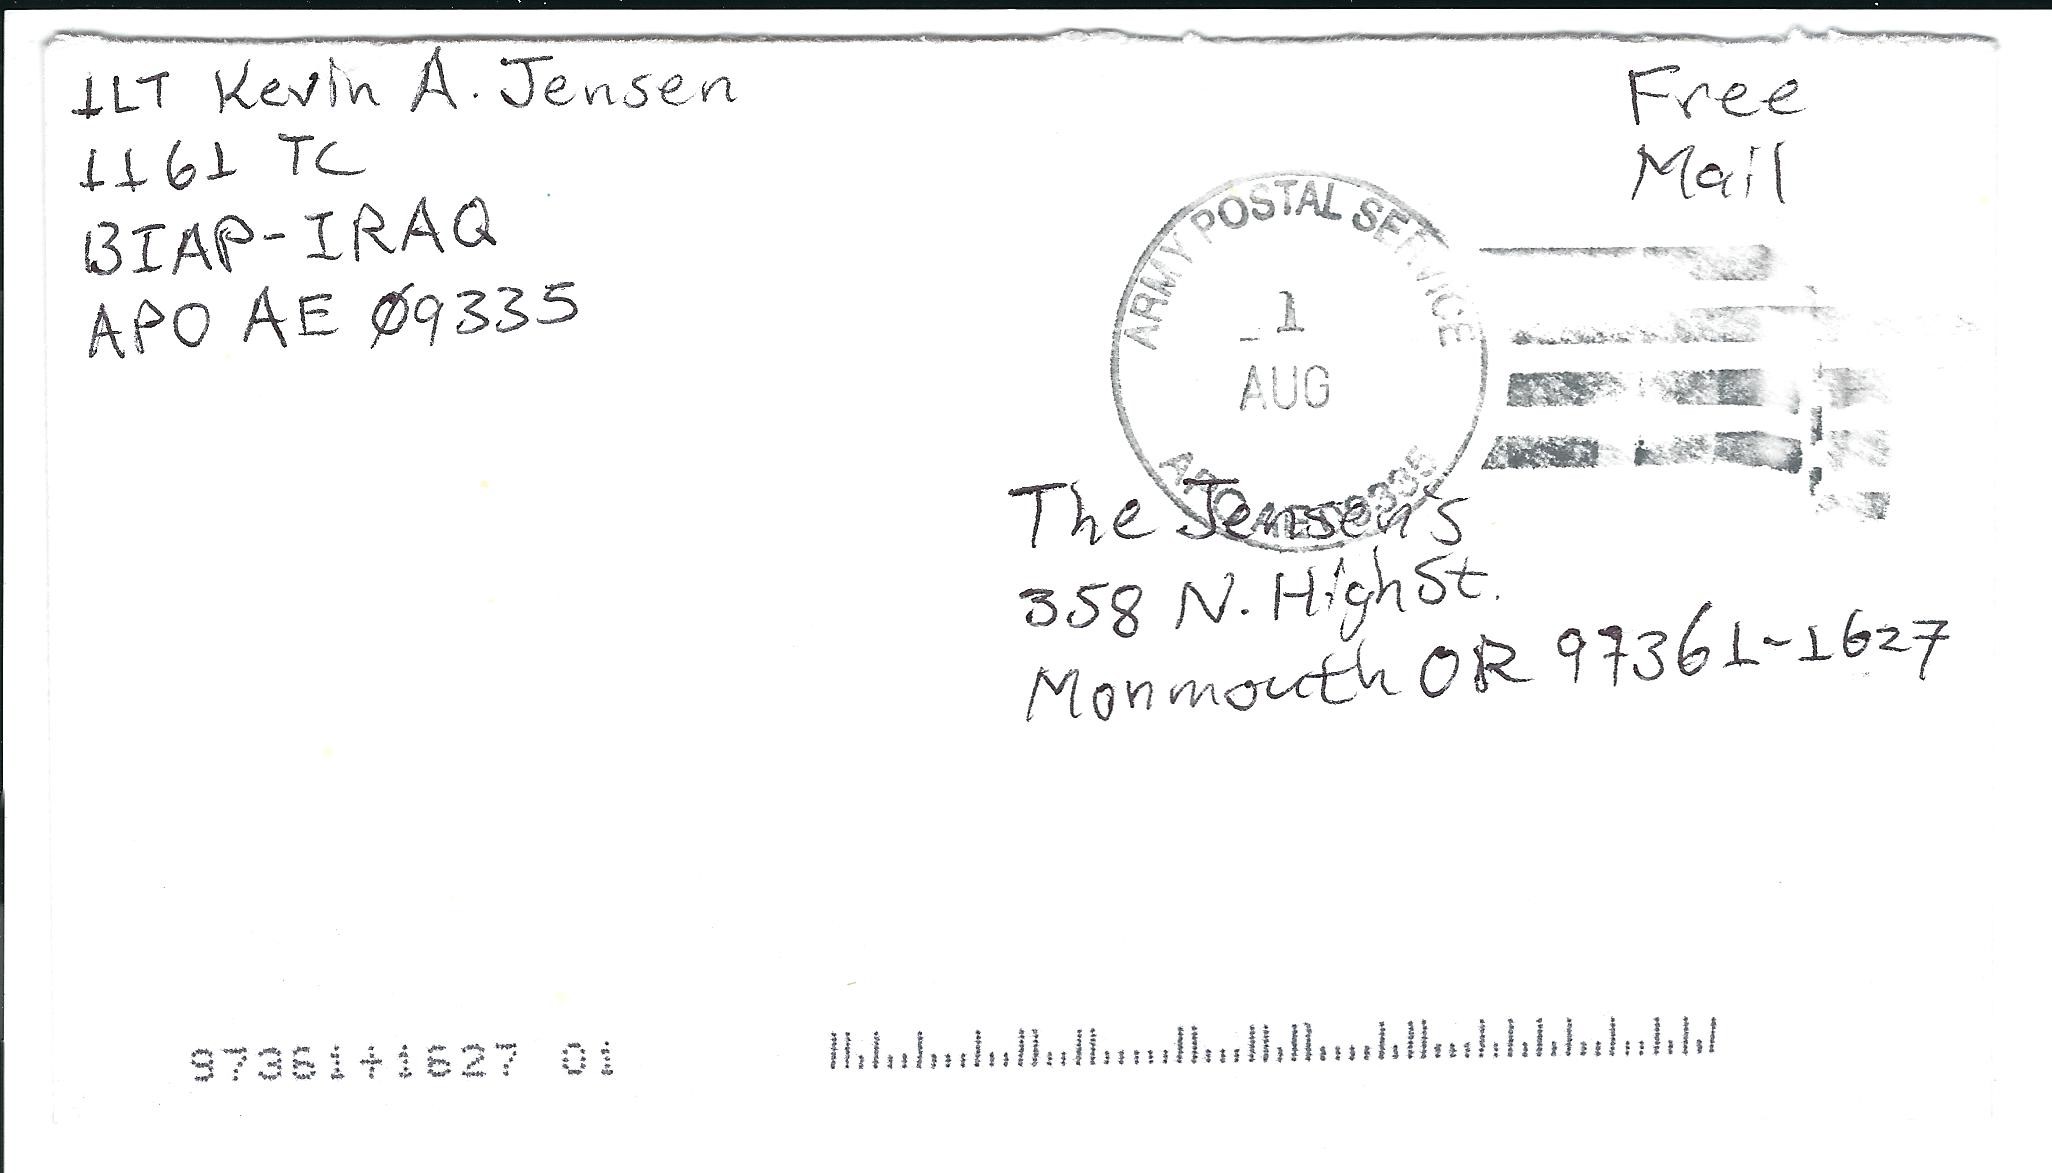 1LT Kevin A. Jensen
1161 TC
BIAP-IRAQ
APO AE 09335
Free
Mail
ARMY POSTAL SERVICE
1
AUG
APO AE 09335
The Jensen's
358 N. High St.
Monmouth OR 97361-1627
97361+1627 01